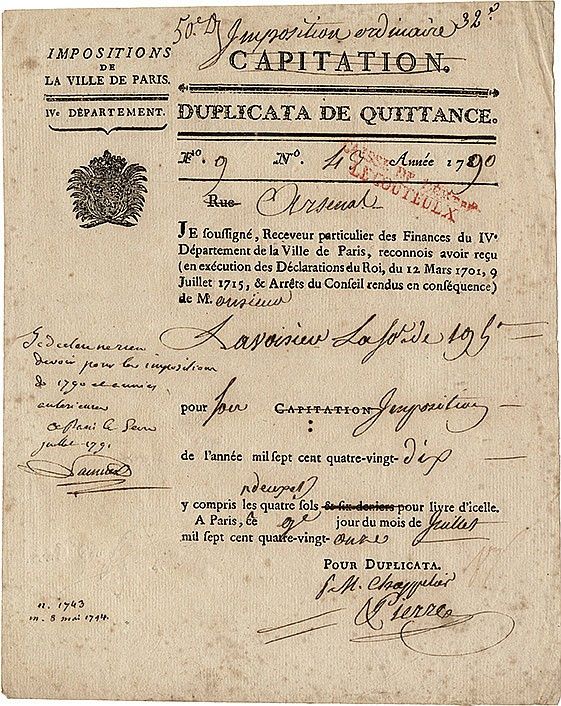 50.e D
Imposition ordinaire 32.s
IMPOSITIONS
DE
LA VILLE DE PARIS.
CAPITATION.
IVe DÉPARTEMENT.
DUPLICATA DE QUITTANCE.
Fo. 9 No. Année 1790
CAISSE DE
LECOUTEULX
Rue Arsenal
JE soussigné, Receveur particulier des Finances du IVe
Département de la Ville de Paris, reconnois avoir reçu
(en exécution des Déclarations du Roi, du 12 Mars 1701, 9
Juillet 1715, & Arrêts du Conseil rendus en conséquence)
de Monsieur
Lavoisier La So.e de 19
Je declare ne rien
devoir pour les impositions
de 1790 et années
anterieures
a Paris le
juillet 1791
pour Son CAPITATION Imposition
de l'année mil sept cent quatre-vingt-dix
y compris les quatre sols & six deniers pour livre d'icelle.
A Paris, ce 9e jour du mois de Juillet
mil sept cent quatre-vingt-onze
POUR DUPLICATA.
P. M. Chappelai
Pierre
n. 1743
m. 8 mai 1794.